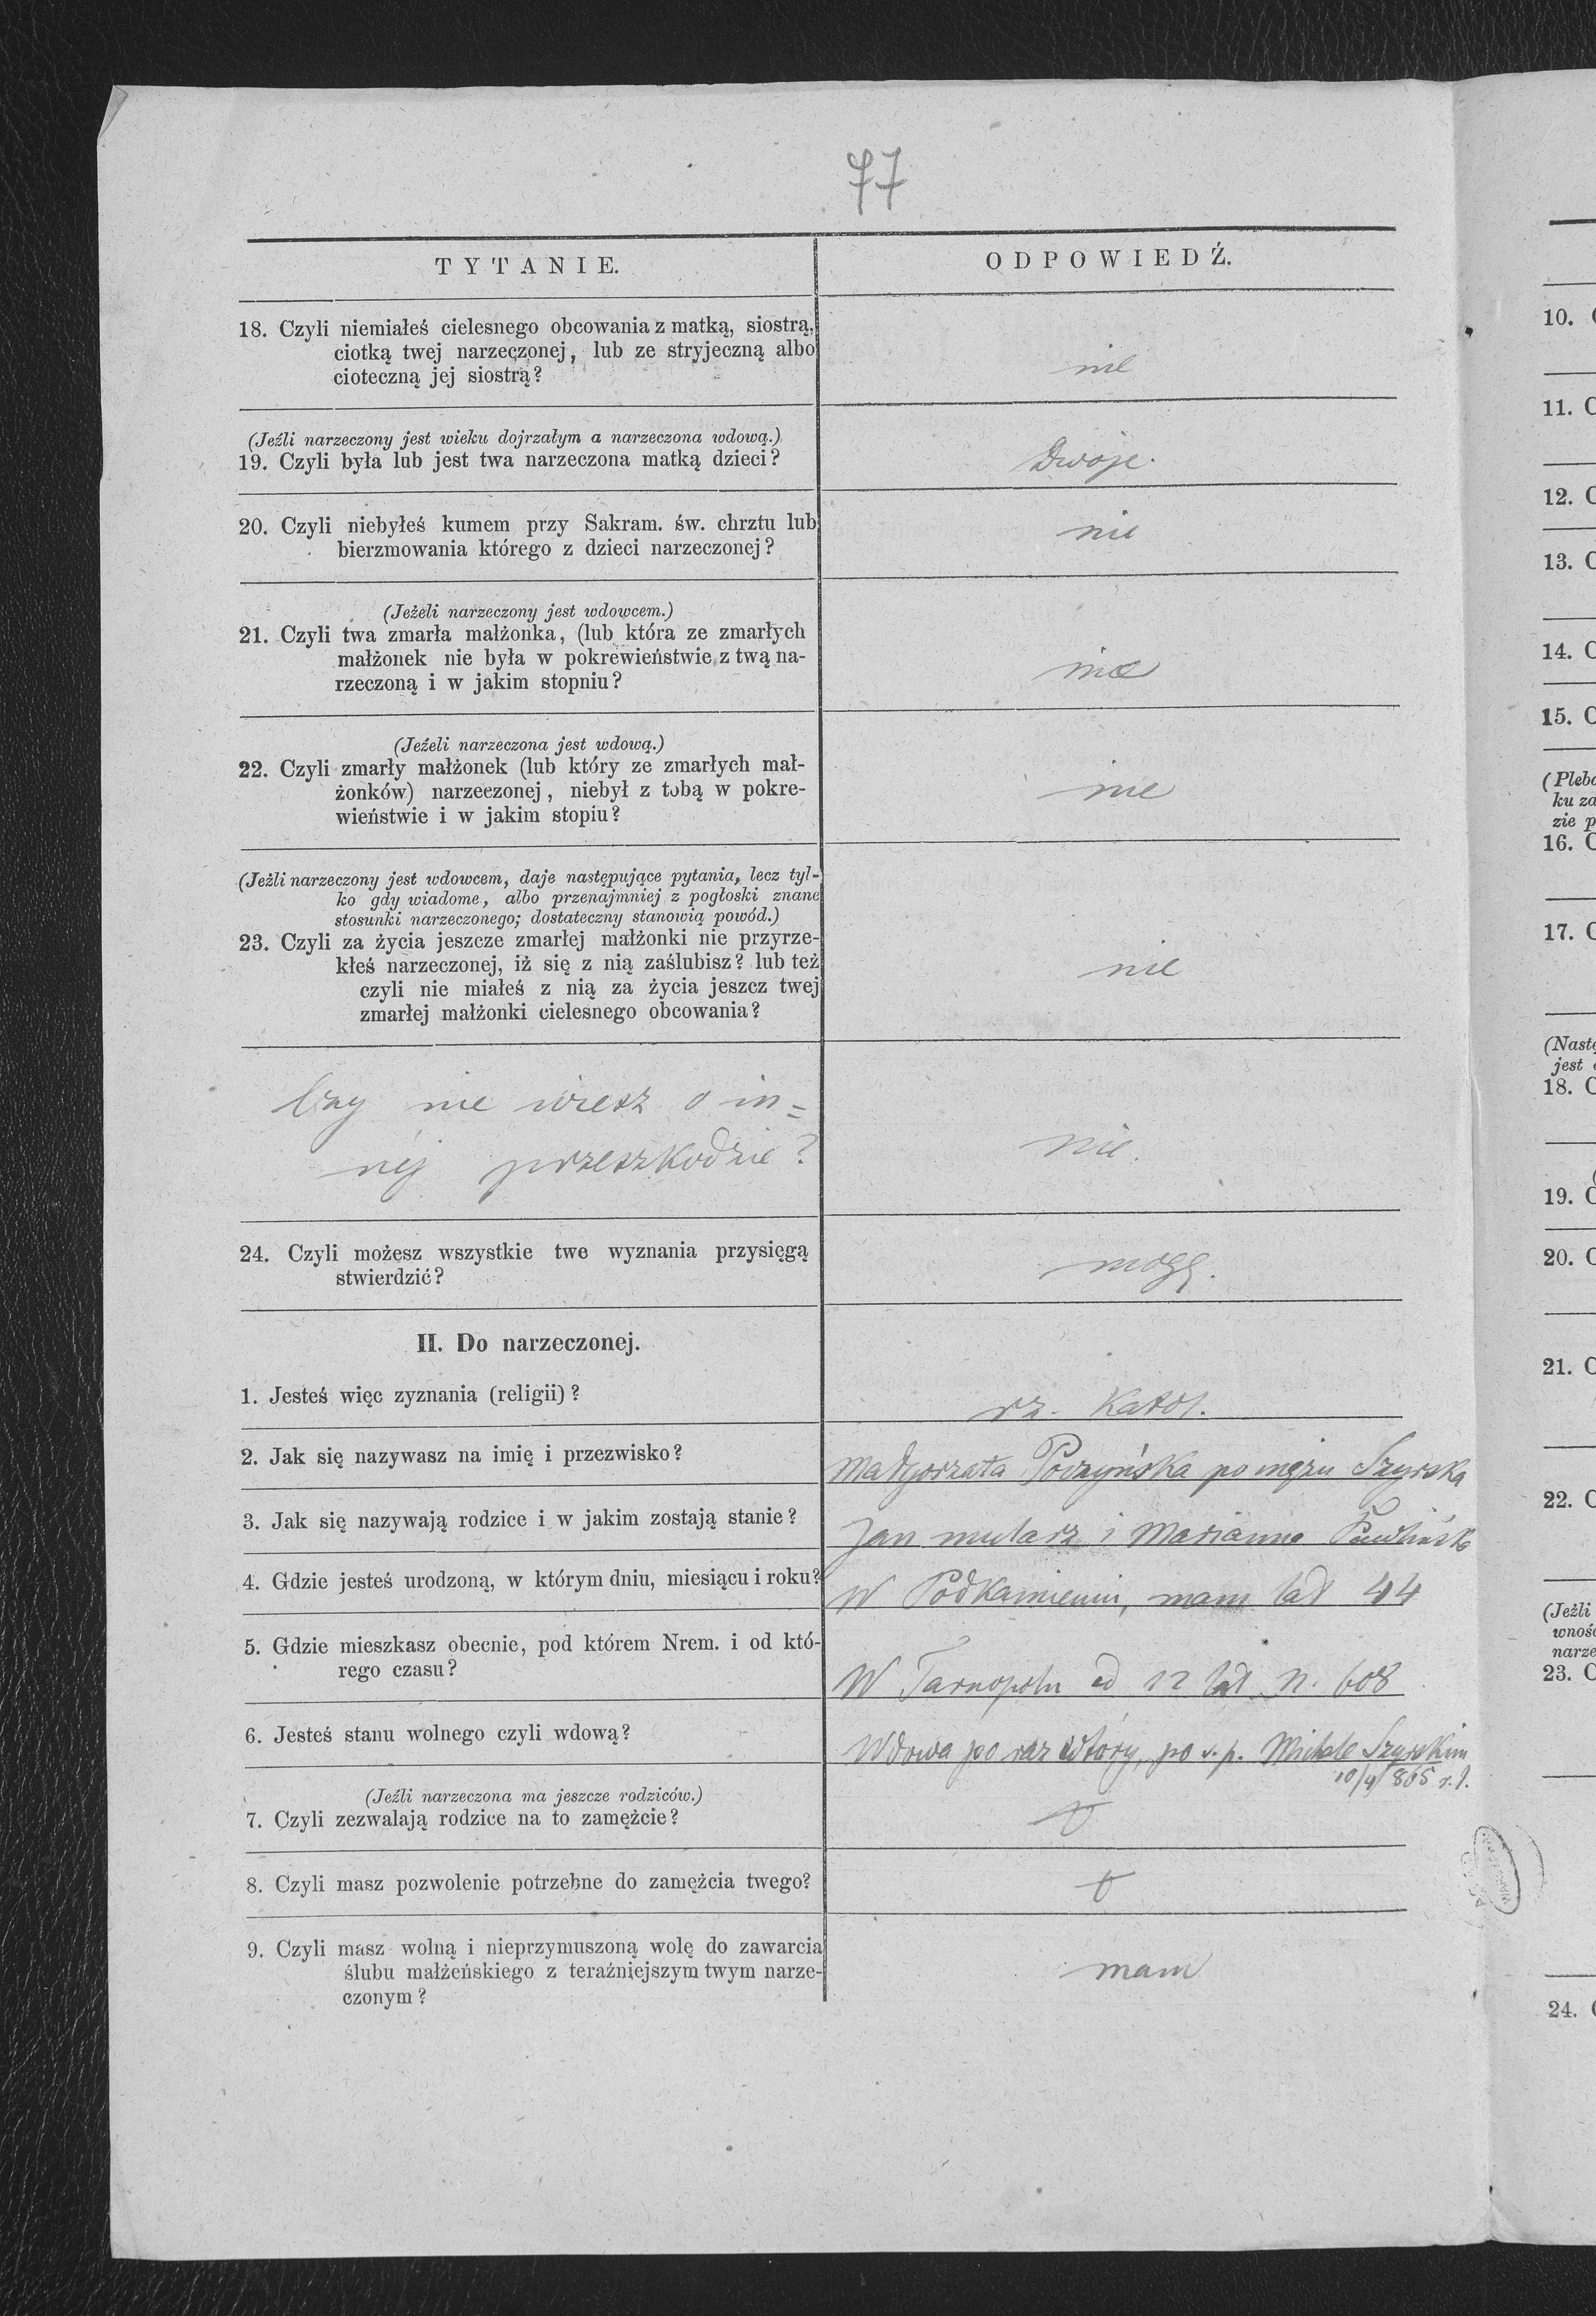 77
TYTANIE.
ODPOWIEDŹ.
18. Czyli niemiałeś cielesnego obcowania z matką, siostrą,
ciotką twej narzeczonej, lub ze stryjeczną albo
cioteczną jej siostrą?
nie
(Jeźli narzeczony jest wieku dojrzałym a narzeczona wdową.)
19. Czyli była lub jest twa narzeczona matką dzieci?
Dwoje.
20. Czyli niebyłeś kumem przy Sakram. św. chrztu lub
bierzmowania którego z dzieci narzeczonej?
nie
(Jeżeli narzeczony jest wdowcem.)
21. Czyli twa zmarła małżonka, (lub która ze zmarłych
małżonek nie była w pokrewieństwie z twą na-
rzeczoną i w jakim stopniu?
nie
(Jeżeli narzeczona jest wdową.)
22. Czyli zmarły małżonek (lub który ze zmarłych mał-
żonków) narzeczonej, niebył z tobą w pokre-
wieństwie i w jakim stopiu?
nie
(Jeżli narzeczony jest wdowcem, daje następujące pytania, lecz tyl-
ko gdy wiadome, albo przenajmniej z pogłoski znane
stosunki narzeczonego; dostateczny stanowią powód.)
23. Czyli za życia jeszcze zmarłej małżonki nie przyrze-
kłeś narzeczonej, iż się z nią zaślubisz? lub też
czyli nie miałeś z nią za życia jeszcz twej
zmarłej małżonki cielesnego obcowania?
nie
Czy nie wiesz o in=
néj przeszkodzie?
nie.
24. Czyli możesz wszystkie twe wyznania przysięgą
stwierdzić?
mogę.
II. Do narzeczonej.
1. Jesteś więc zyznania (religii)?
rz. katol.
2. Jak się nazywasz na imię i przezwisko?
Małgorzata po mężu Szyrska
3. Jak się nazywają rodzice i w jakim zostają stanie?
Jan mularz i Marianna
4. Gdzie jesteś urodzoną, w którym dniu, miesiącu i roku?
W Podkamieniu, mam lat 44
5. Gdzie mieszkasz obecnie, pod którem Nrem. i od któ-
rego czasu?
W Tarnopolu od 12 lat n. 608
6. Jesteś stanu wolnego czyli wdową?
Wdowa po raz wtóry, po s. p. Michale Szyrskim
10/4 865 r. ł.
(Jeźli narzeczona ma jeszcze rodziców.)
7. Czyli zezwalają rodzice na to zamężcie?
8. Czyli masz pozwolenie potrzebne do zamężcia twego?
9. Czyli masz wolną i nieprzymuszoną wolę do zawarcia
ślubu małżeńskiego z teraźniejszym twym narze-
czonym?
mam
10.
11. C
12. C
13. C
14. C
15. C
(Pleba
ku za
zie p
16. C
17. C
(Nastę
jest
18. C
19. C
20. C
21. C
22. C
(Jeżli
wnośc
narze
23. C
24.